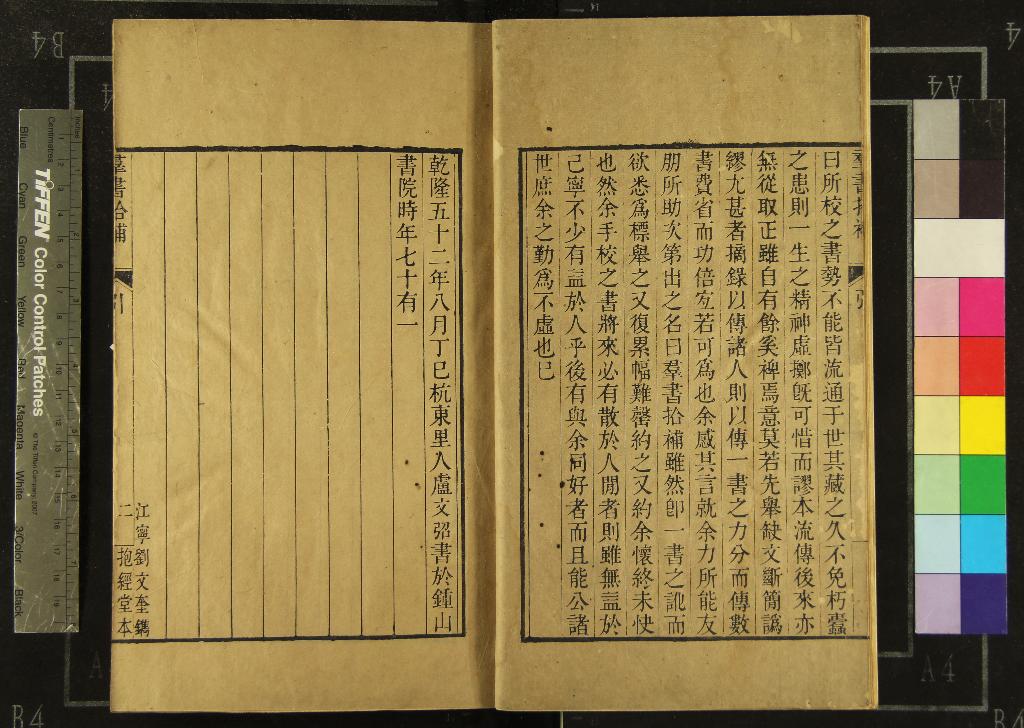 曰所校之書勢不能皆流通于世其藏之久不免朽蠹
之患則一生之精神虛擲旣可惜而謬本流傳後來亦
無從取正雖自有餘奚裨焉意莫若先舉缺文斷簡譌
繆尤甚者摘錄以傳諸人則以傳一書之力分而傳數
書費省而功倍宐若可爲也余感其言就余力所能友
朋所助次第出之名曰羣書拾補雖然卽一書之訛而
欲悉爲標舉之又復累幅難罄約之又約余懷終未快
也然余手校之書將來必有散於人閒者則雖無益於
己寧不少有益於人乎後有與余同好者而且能公諸
世庶余之勤爲不虛也已
乾隆五十二年八月丁巳杭東里人盧文弨書於鍾山
書院時年七十有一
羣書拾補
二
江寧劉文奎鐫
抱經堂本
TIFFEN Color Control Patches
© The Tiffen Company, 2007
Centimetres
Inches
Blue
Cyan
Green
Yellow
Red
Magenta
White
3/Color
Black
B4
A4
A4
B4